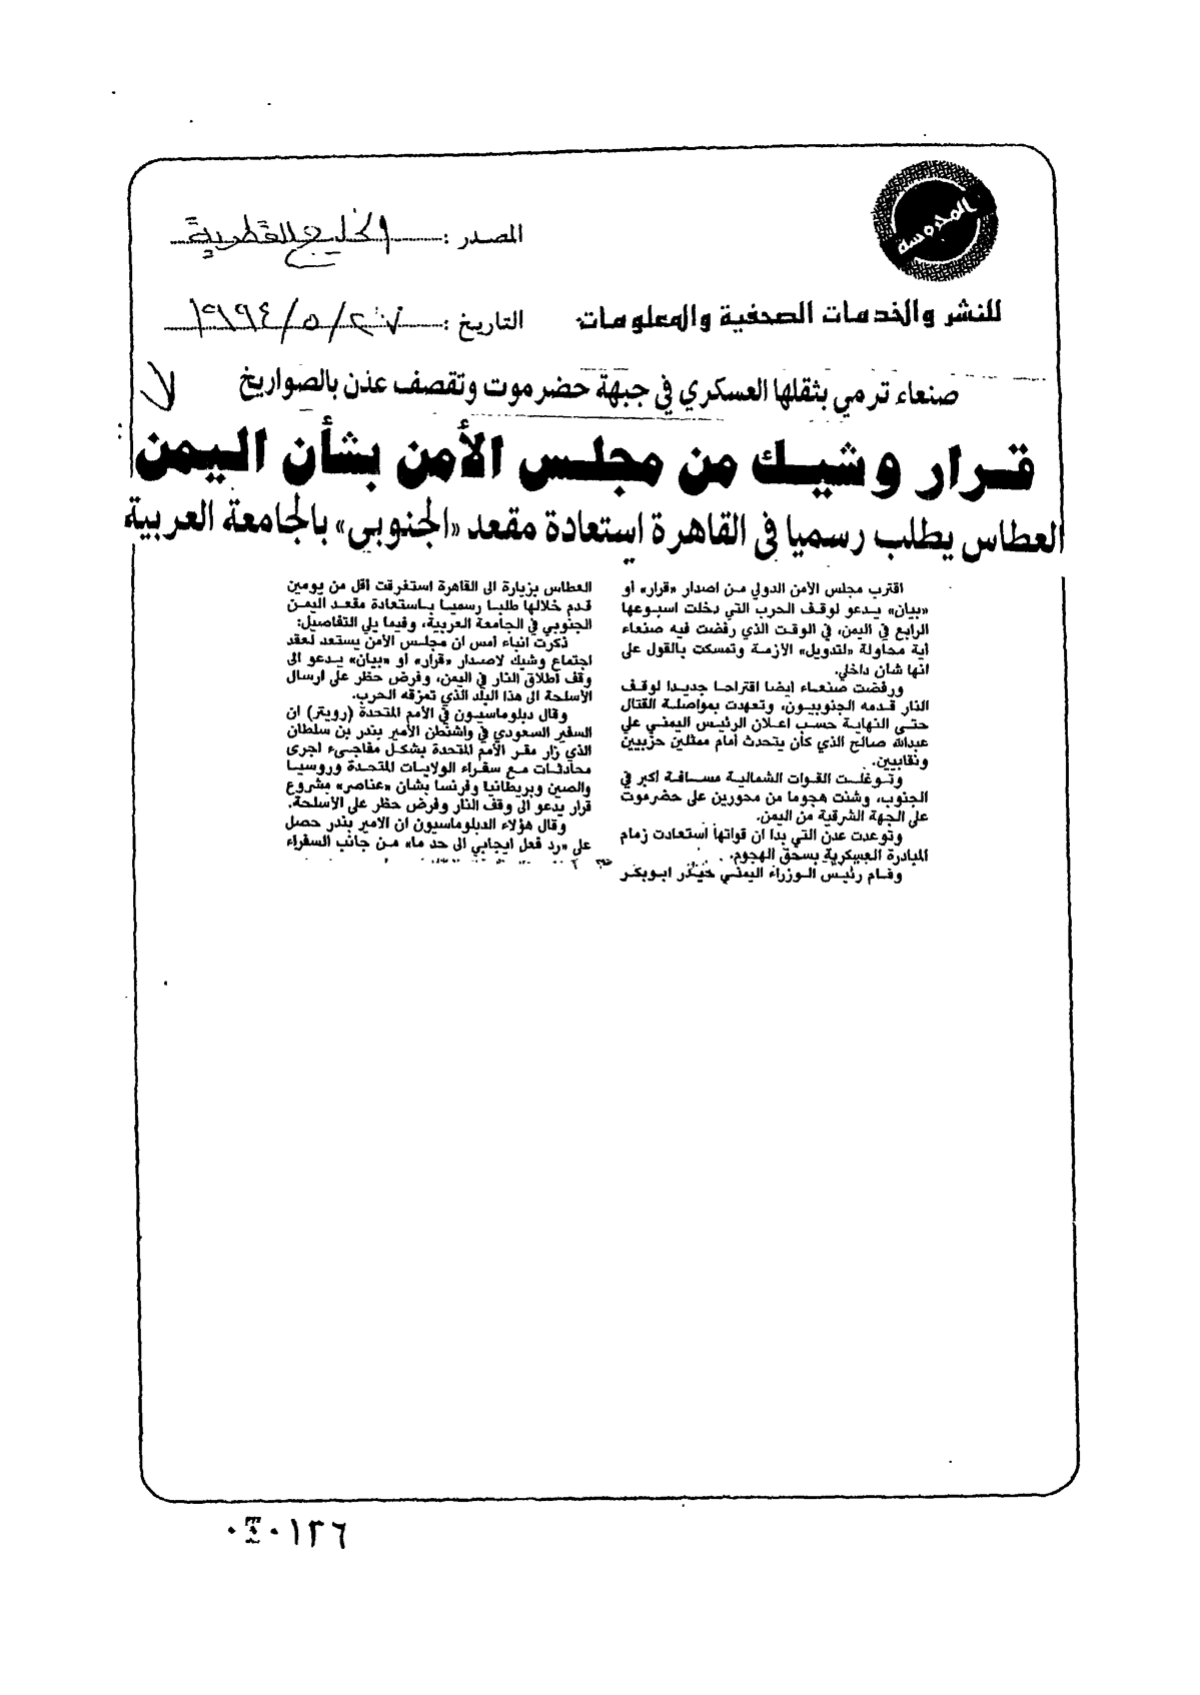 المحروسة
المصدر : الخليج القطرية
للنشر والخدمات الصحفية والمعلومات
التاريخ : ٢٧/٥/١٩٩٤
صنعاء ترمي بثقلها العسكري في جبهة حضرموت وتقصف عدن بالصواريخ
قرار وشيك من مجلس الأمن بشأن اليمن
العطاس يطلب رسميا في القاهرة استعادة مقعد «الجنوبي» بالجامعة العربية
اقترب مجلس الامن الدولي من اصدار «قرار» أو
«بيان» يدعو لوقف الحرب التي دخلت اسبوعها
الرابع في اليمن، في الوقت الذي رفضت فيه صنعاء
أية محاولة «لتدويل» الازمة وتمسكت بالقول على
انها شان داخلي.
ورفضت صنعاء ايضا اقتراحا جديدا لوقف
النار قدمه الجنوبيون، وتعهدت بمواصلة القتال
حتى النهاية حسب اعلان الرئيس اليمني علي
عبدالله صالح الذي كان يتحدث أمام ممثلين حزبيين
ونقابيين.
وتوغلت القوات الشمالية مسافة اكبر في
الجنوب، وشنت هجوما من محورين على حضرموت
على الجهة الشرقية من اليمن.
وتوعدت عدن التي بدا ان قواتها استعادت زمام
المبادرة العسكرية بسحق الهجوم.
وقام رئيس الوزراء اليمني حيدر ابوبكر
العطاس بزيارة الى القاهرة استغرقت أقل من يومين
قدم خلالها طلبا رسميا باستعادة مقعد اليمن
الجنوبي في الجامعة العربية، وفيما يلي التفاصيل:
ذكرت انباء امس ان مجلس الأمن يستعد لعقد
اجتماع وشيك لاصدار «قرار» أو «بيان» يدعو الى
وقف اطلاق النار في اليمن، وفرض حظر على ارسال
الأسلحة الى هذا البلد الذي تمزقه الحرب.
وقال دبلوماسيون في الأمم المتحدة (رويتر) ان
السفير السعودي في واشنطن الأمير بندر بن سلطان
الذي زار مقر الأمم المتحدة بشكل مفاجىء اجرى
محادثات مع سفراء الولايات المتحدة وروسيا
والصين وبريطانيا وفرنسا بشان «عناصر» مشروع
قرار يدعو الى وقف النار وفرض حظر على الأسلحة.
وقال هؤلاء الدبلوماسيون ان الامير بندر حصل
على «رد فعل ايجابي الى حد ما» من جانب السفراء